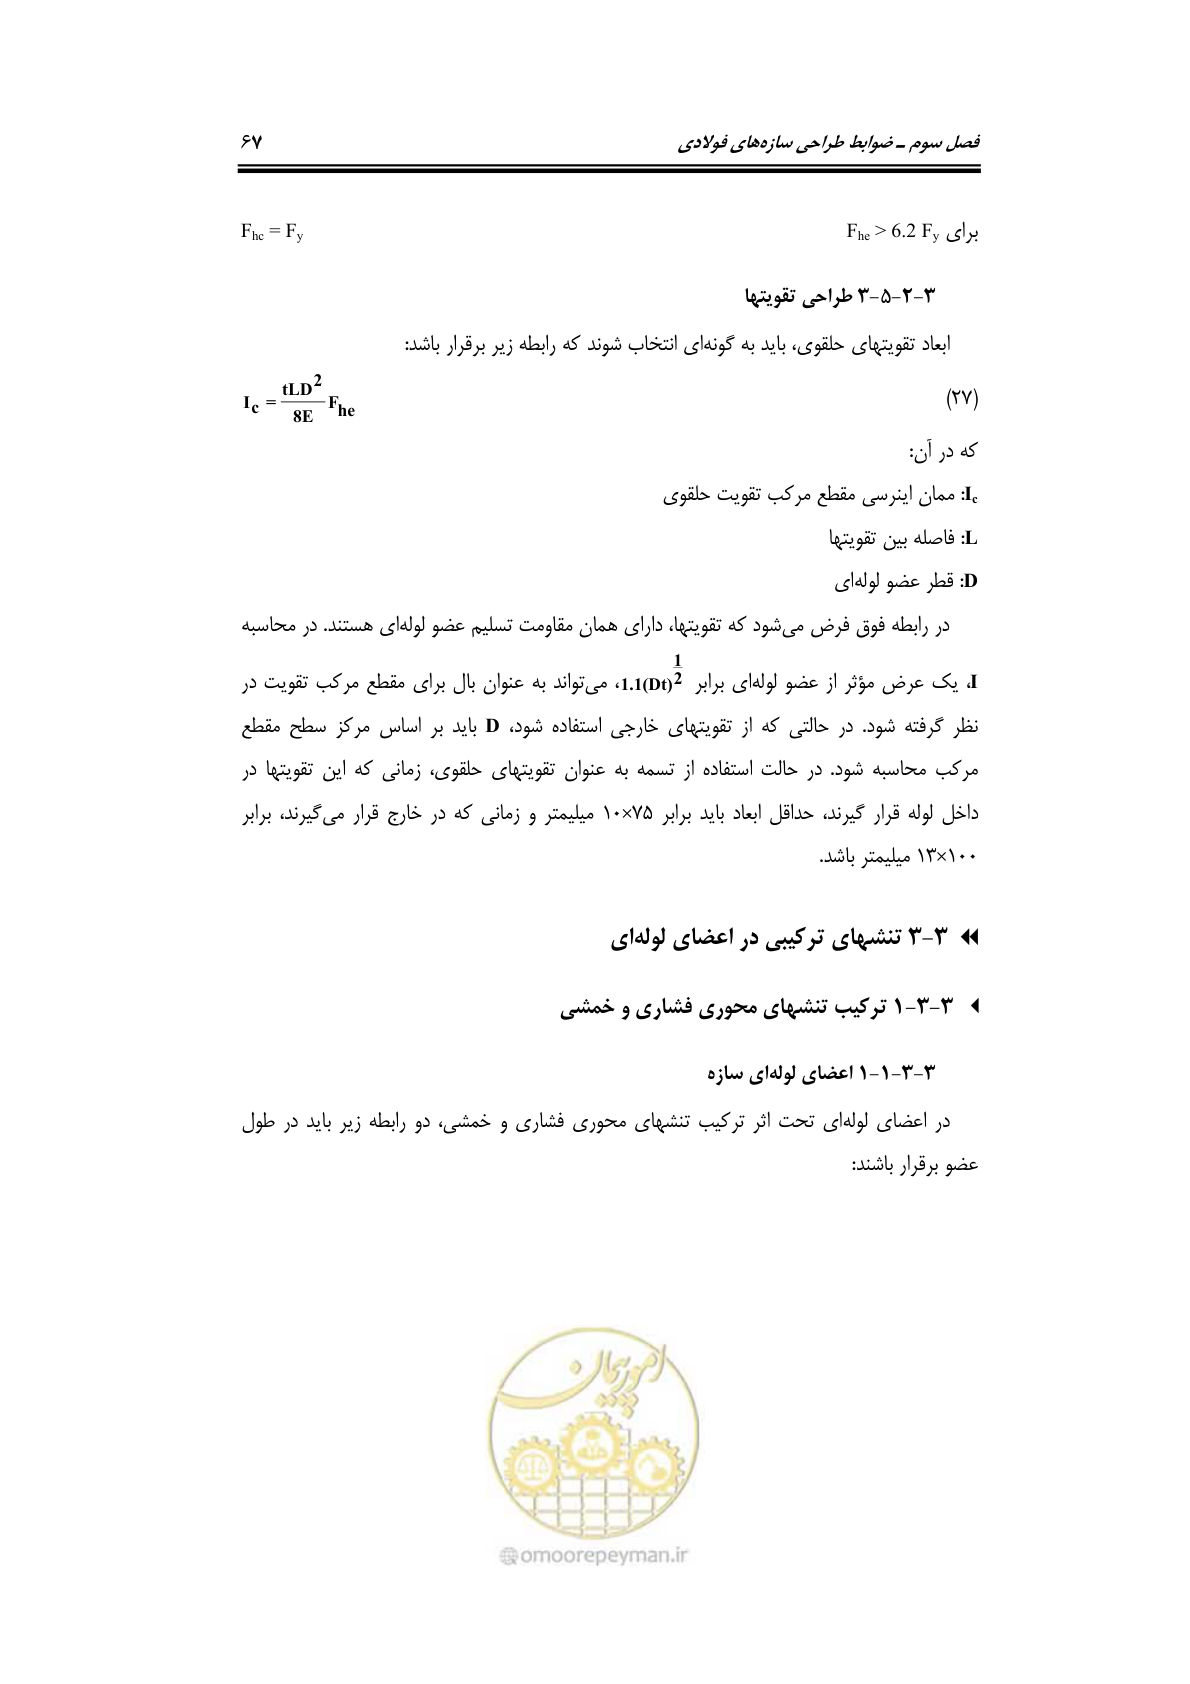 فصل سوم ـ ضوابط طراحی سازه‌های فولادی ۶۷
برای Fhe > 6.2 Fy Fhc = Fy
۳-۲-۵-۳ طراحی تقویتها
ابعاد تقویتهای حلقوی، باید به گونه‌ای انتخاب شوند که رابطه زیر برقرار باشد:
(۲۷) Ic = tLD²/8E Fhe
که در آن:
Ic: ممان اینرسی مقطع مرکب تقویت حلقوی
L: فاصله بین تقویتها
D: قطر عضو لوله‌ای
در رابطه فوق فرض می‌شود که تقویتها، دارای همان مقاومت تسلیم عضو لوله‌ای هستند. در محاسبه
I، یک عرض مؤثر از عضو لوله‌ای برابر 1.1(Dt)^1/2، می‌تواند به عنوان بال برای مقطع مرکب تقویت در
نظر گرفته شود. در حالتی که از تقویتهای خارجی استفاده شود، D باید بر اساس مرکز سطح مقطع
مرکب محاسبه شود. در حالت استفاده از تسمه به عنوان تقویتهای حلقوی، زمانی که این تقویتها در
داخل لوله قرار گیرند، حداقل ابعاد باید برابر ۷۵×۱۰ میلیمتر و زمانی که در خارج قرار می‌گیرند، برابر
۱۰۰×۱۳ میلیمتر باشد.
۳-۳ تنشهای ترکیبی در اعضای لوله‌ای
۳-۳-۱ ترکیب تنشهای محوری فشاری و خمشی
۳-۳-۱-۱ اعضای لوله‌ای سازه
در اعضای لوله‌ای تحت اثر ترکیب تنشهای محوری فشاری و خمشی، دو رابطه زیر باید در طول
عضو برقرار باشند:
امور پیمان
omoorepeyman.ir